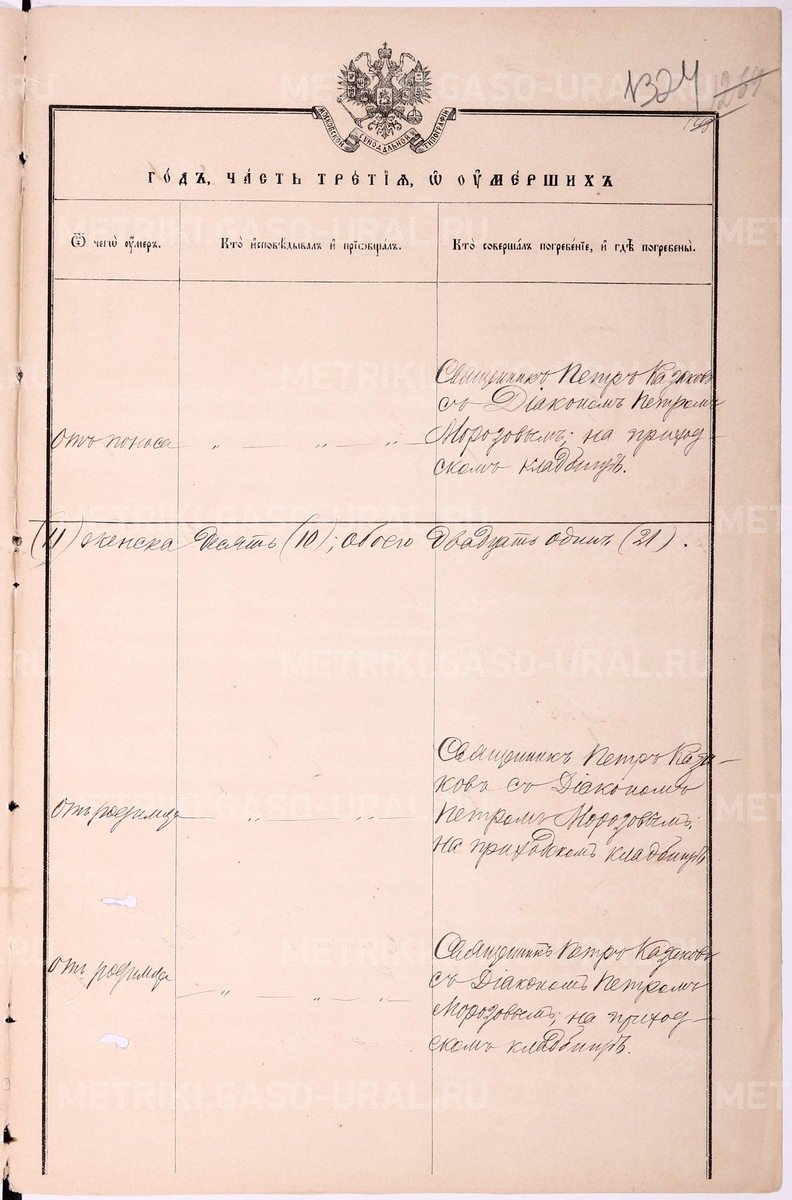 №324 1269
МОСКОВСКОЙ СѴНОДАЛЬНОЙ ТИПОГРАФІИ
ГОДЪ, ЧАСТЬ ТРЕТІЯ, Ѡ ОУМЕРШИХЪ
Ѿ чегѡ оумеръ. Кто исповѣдывалъ и пріобщалъ. Кто совершалъ погребеніе, и гдѣ погребены.
Священникъ Петръ Казаковъ
съ Діакономъ Петромъ
Отъ поноса „ — „ — „ — Морозовымъ; на приход-
скомъ кладбищѣ.
(11) женска десять (10); обоего двадцать одинъ (21).
Священникъ Петръ Каза-
ковъ съ Діакономъ
Отъ родимца — „ — „ — Петромъ Морозовымъ;
на приходскомъ кладбищѣ
Священникъ Петръ Казаковъ
Отъ родимца — „ — „ — „ — съ Діакономъ Петромъ
Морозовымъ; на приход-
скомъ кладбищѣ.
METRIKI.GASO-URAL.RU